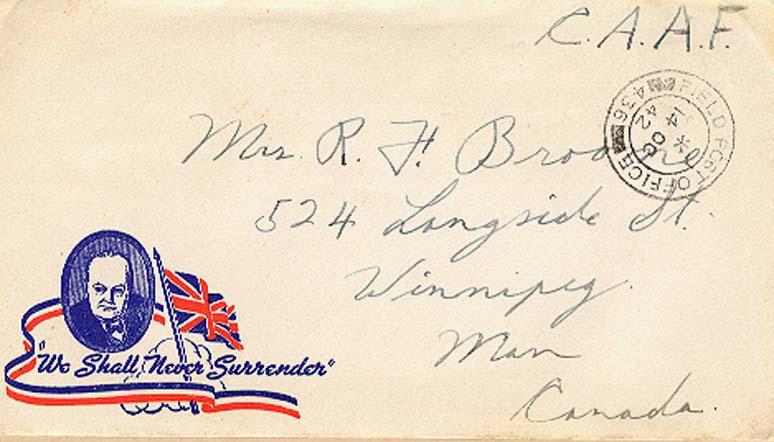 C.A.A.F.
FIELD POST OFFICE
436
14 OC
42
Mrs. R. H.
524 Langside St.
Winnipeg.
Man
Canada.
"We Shall Never Surrender"